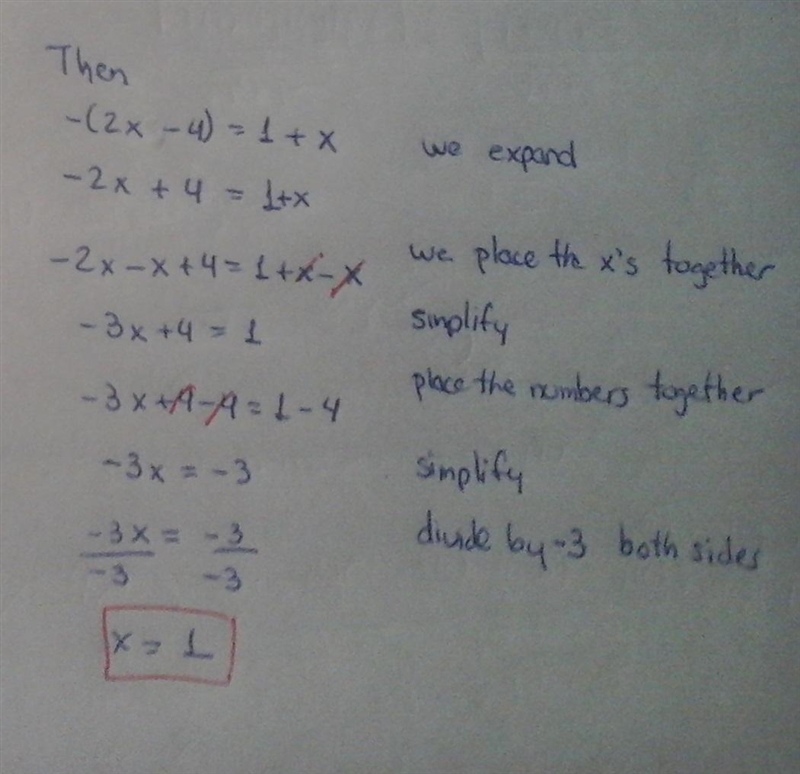 Then
-(2x - 4) = 1 + x we expand
-2x + 4 = 1+x
-2x - x + 4 = 1 + x - x we place the x's together
-3x + 4 = 1 simplify
-3x + 4 - 4 = 1 - 4 place the numbers together
-3x = -3 simplify
-3x/-3 = -3/-3 divide by -3 both sides
x = 1